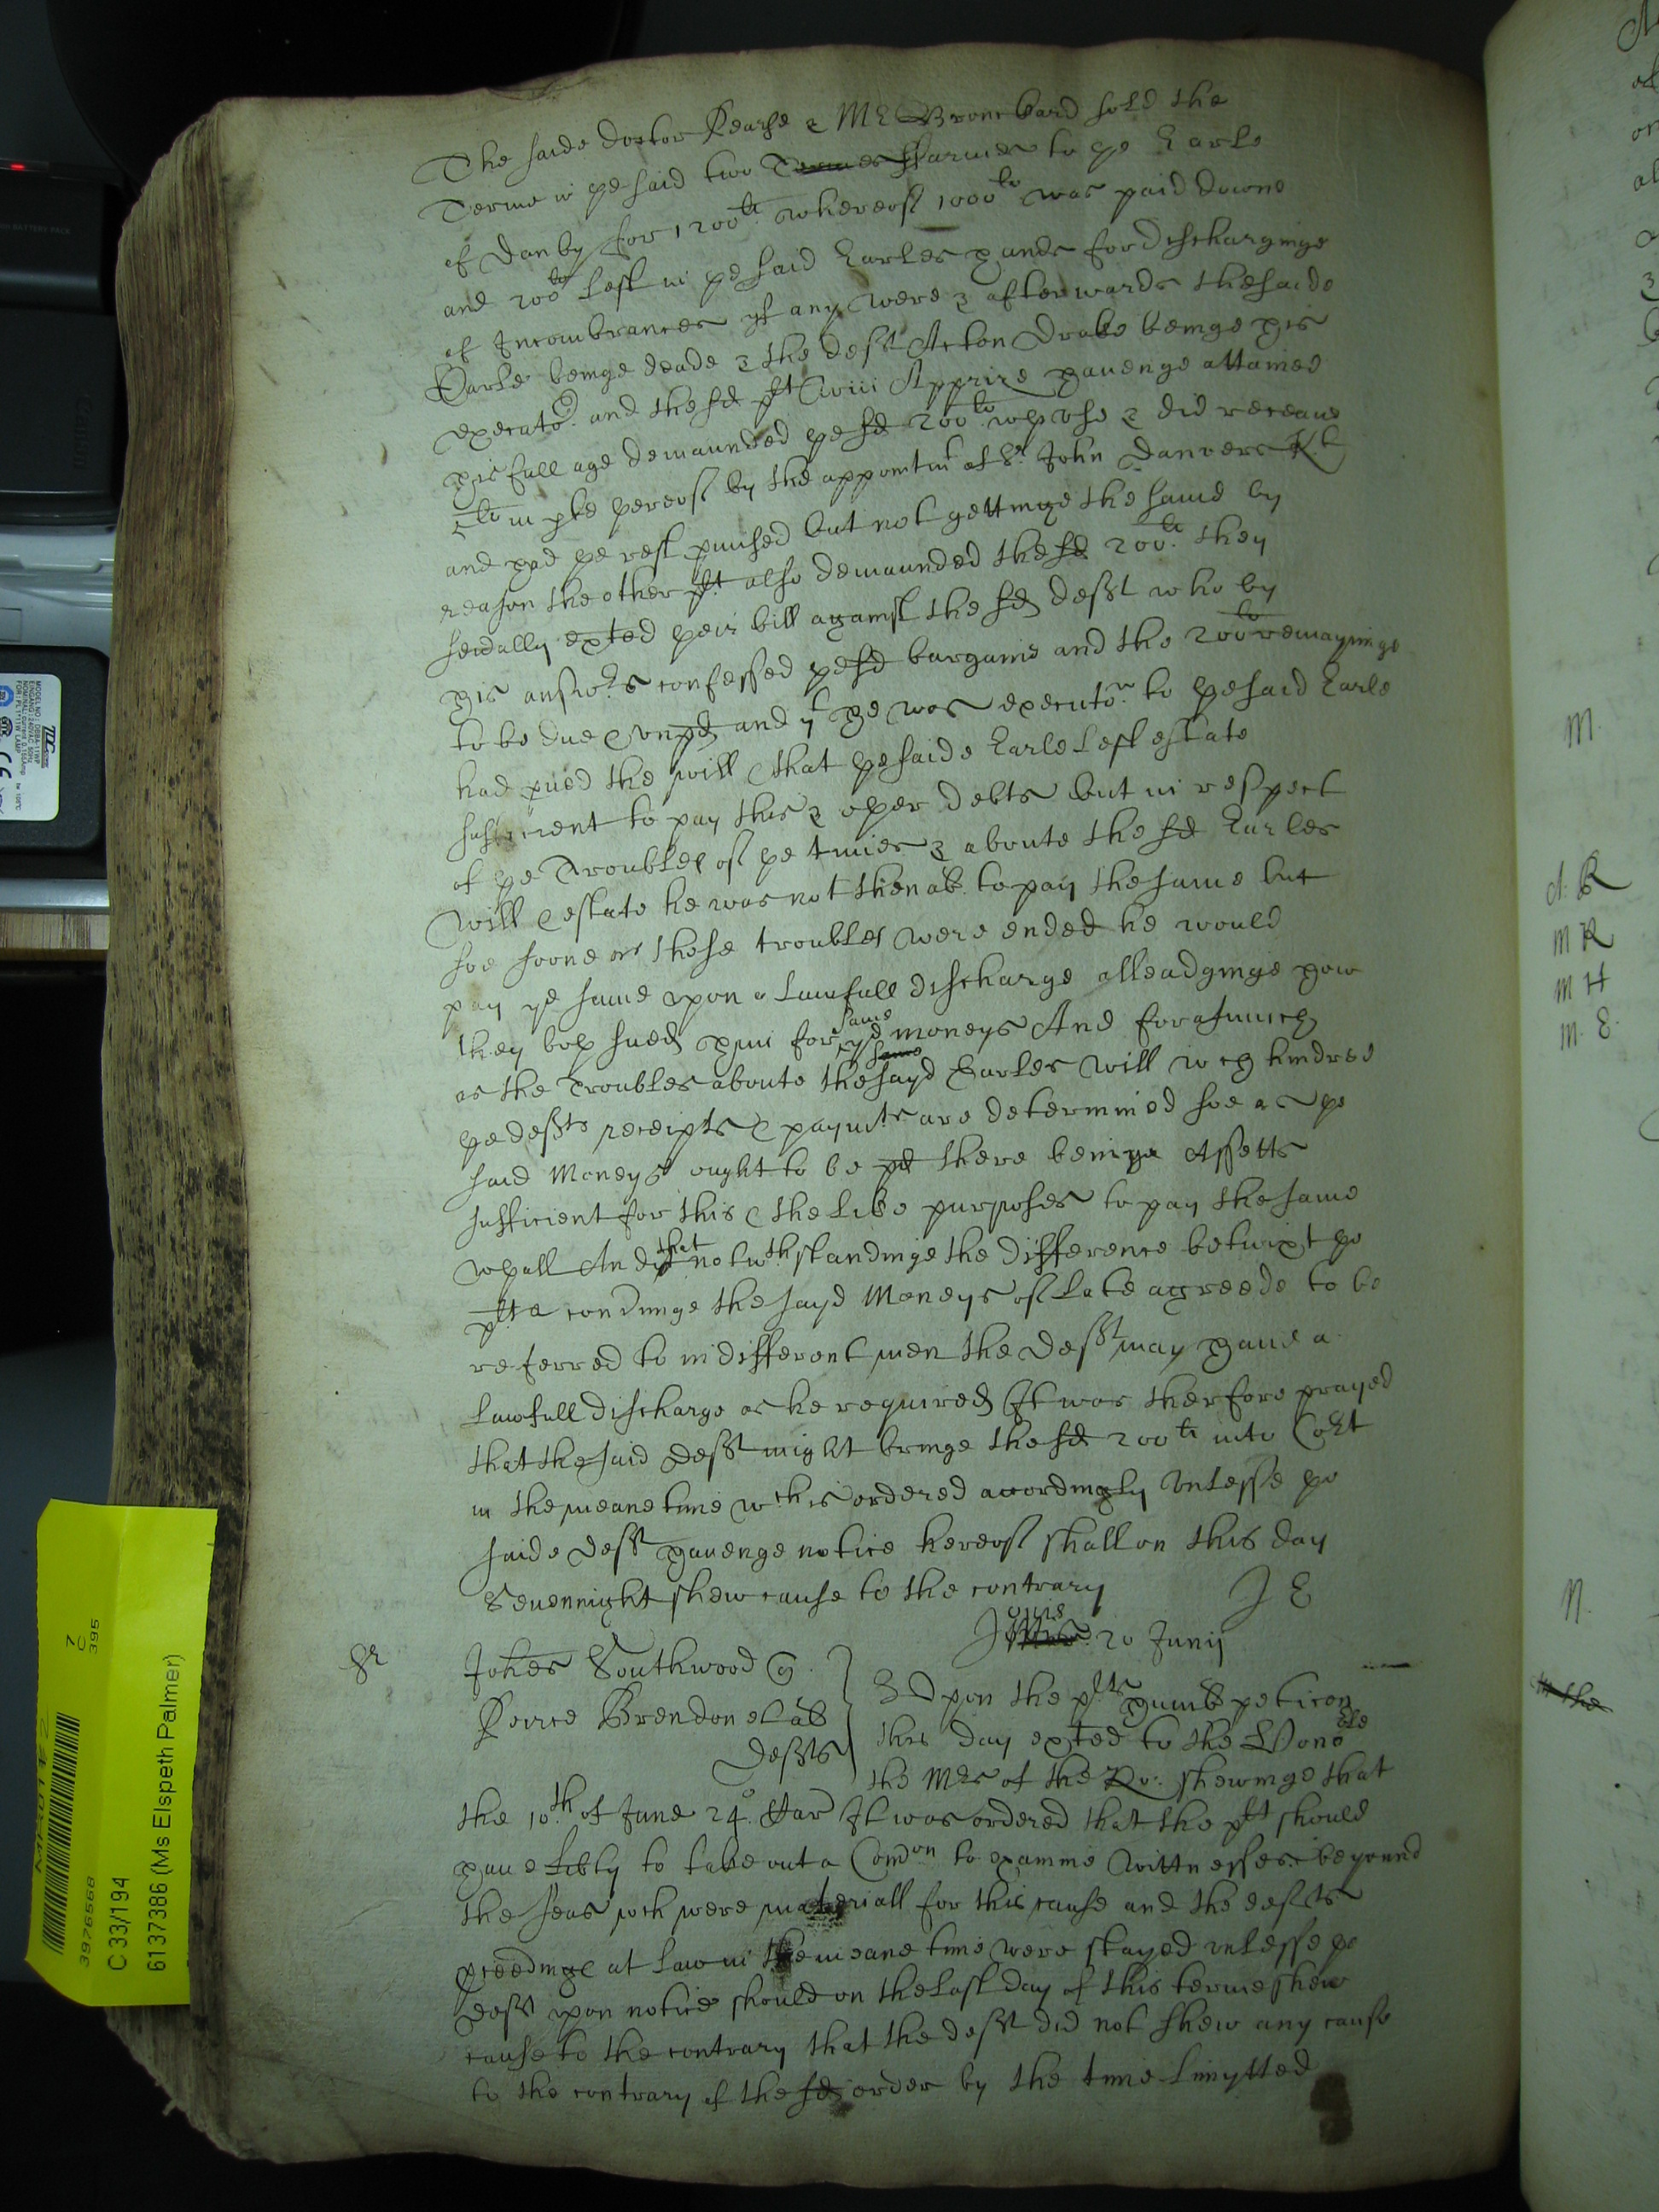 The saide doctor Pearse & Mr Brouckard sold the
Terme in ye said two Termes ffarmes to ye Earle
of Danby for 1200li whereof 1000li was paid downe
and 200li left in ye said Earles hands for discharginge
of Incombrances yf any were & afterwards the saide
Earle beinge deade & the deft Acton Drake beinge his
executor and the sd plt Apprice havenge attained
his full age demaunded ye sd 200li & did receaue
5li in pte hereof by the appointmt of Sr John Danvers Kt
and had ye rest pmised but not gettinge the same by
reason the other plt also demaunded the sd 200li they
seũally exĩted heir bill against the sd deft who by
his answers confessed ye sd bargaine and the 200li remayninge
to be due & unpd and yt he was executor to ye said Earle
had pued the will that ye saide Earle left estate
sufficient to pay this & oyer debts but in respect
of ye Troubles of ye times & aboute the sd Earles
Will & estate he was not then ab. to pay the same but
soe soone as those troubles were ended he would
pay ye same upon a lawfull discharge alleadginge how
they boy sued him for same moneys And forasmuch
as the Troubles aboute the sayd Earles Will wch hindred
ye defts receipts & paymts are determined soe as ye
said Moneys ought to be pd there beinge Assetts
sufficient for this & the like purposes to pay the same
wyall And that notwthstandinge the difference betwixt ye
plts conc̃inge the sayd Moneys is of late agreede to be
referred to indifferent men the Deft may haue a
lawfull discharge as he required It was therfore prayed
that the said Deft might bringe the sd 200li into Cort
in the meane time wch is ordered accordingly Unlesse ye
saide Deft havenge notice hereof shall on this day
Sevennight shew cause to the contrary J E
Jovis 20 Junij
Sr Johes Southwood q
Peirce Brendon et al
Defts
Upon the plts humb peticon
this day exted to the Honoble
the Mr of the Ro: shewinge that
the 10th of June 24o Car It was ordered that the plt should
haue libty to take out a Comon to examine Wittnesses beyound
the seas wch were materiall for this cause and the defts
pceedinge at law in the meane time were stayed unlesse ye
Deft upon notice should on the last day of this terme shew
cause to the contrary that the deft did not shew any cause
to the contrary of the sd order by the time limytted
M.
A. R
M R
M H
M. E.
N.
in the
C 33/194
6137386 (Ms Elspeth Palmer)
3976568
7
C
395